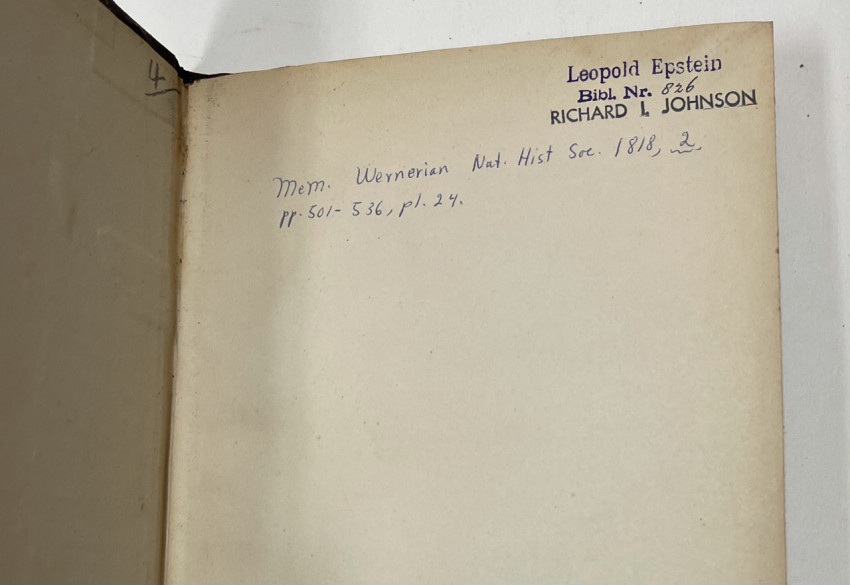 4
Leopold Epstein
Bibl. Nr. 826
RICHARD I. JOHNSON
Mem. Wernerian Nat. Hist Soc. 1818, 2,
pp. 501-536, pl. 24.